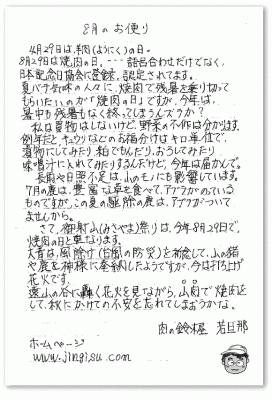 8月のお便り
4月29日は、羊肉(ようにく)の日。
8月29日は焼肉の日。･･･語呂合わせだけでなく、
日本記念日協会に登録、認定されてます。
夏バテ気味の人々に、焼肉で残暑を乗り切って
もらいたいのが「焼肉の日」ですが、今年は、
暑中も残暑もなく終ってしまうんでスか?
私は買物はしないけど、野菜の不作は分かります。
例年だとキュウリなどのお裾分けはキロ単位で、
漬物にしてみたり粕でもんだり、おろしてみたり
味噌汁に入れてみたりするんだけど、今年は届かんて。
長雨や日照不足は、山のモノにも影響しています。
7月の鹿は、豊富な草を食べて、アブラがのっている
ものですが、この夏の駆除の鹿は、アブラがついて
ませんから。
さて、御射山(みさやま)祭りは、今年8月29日で、
焼肉の日と重なります。
大昔は、風除け(台風の防災)を祈念して、山の猪
や鹿を神様に奉納したようですが、今は打ち上げ
花火です。
遠山の谷に轟く花火を見ながら、山肉で焼肉を
して、秋にかけての不安を忘れてしまおうかな。
肉の鈴木屋 若旦那
ホームページ
www.jingisu.com